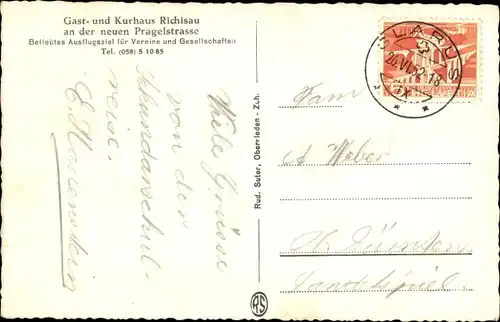 Gast- und Kurhaus Richisau
an der neuen Pragelstrasse
Beliebtes Ausflugsziel für Vereine und Gesellschaften
Tel. (058) 5 10 85
Viele Grüsse
von der
Sekundarschul-
reise.
Rud. Suter, Oberrieden-Zch.
RS
GLARUS
26.VI.52-18
Fam
A Weber